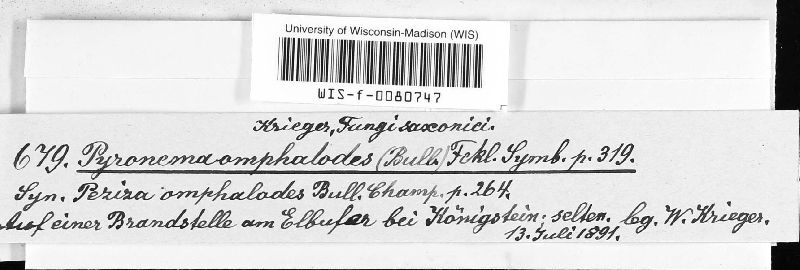 University of Wisconsin-Madison (WIS)
WIS-f-0080747
Krieger, Fungi saxonici.
679. Pyronema omphalodes (Bull.) Fckl. Symb. p. 319.
Syn. Peziza omphalodes Bull. Champ. p. 264.
Auf einer Brandstelle am Elbufer bei Königstein; selten. lg. W. Krieger.
13. Juli 1891.